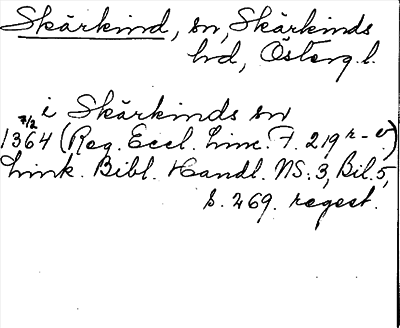 Skärkind, sn, Skärkinds
hd, Östergl.
i Skärkinds sn
7/2
1364 (Reg. Eccl. Linc. F. 219 r-v.)
Link. Bibl. Handl. NS. 3, Bil. 5,
s. 269. regest.